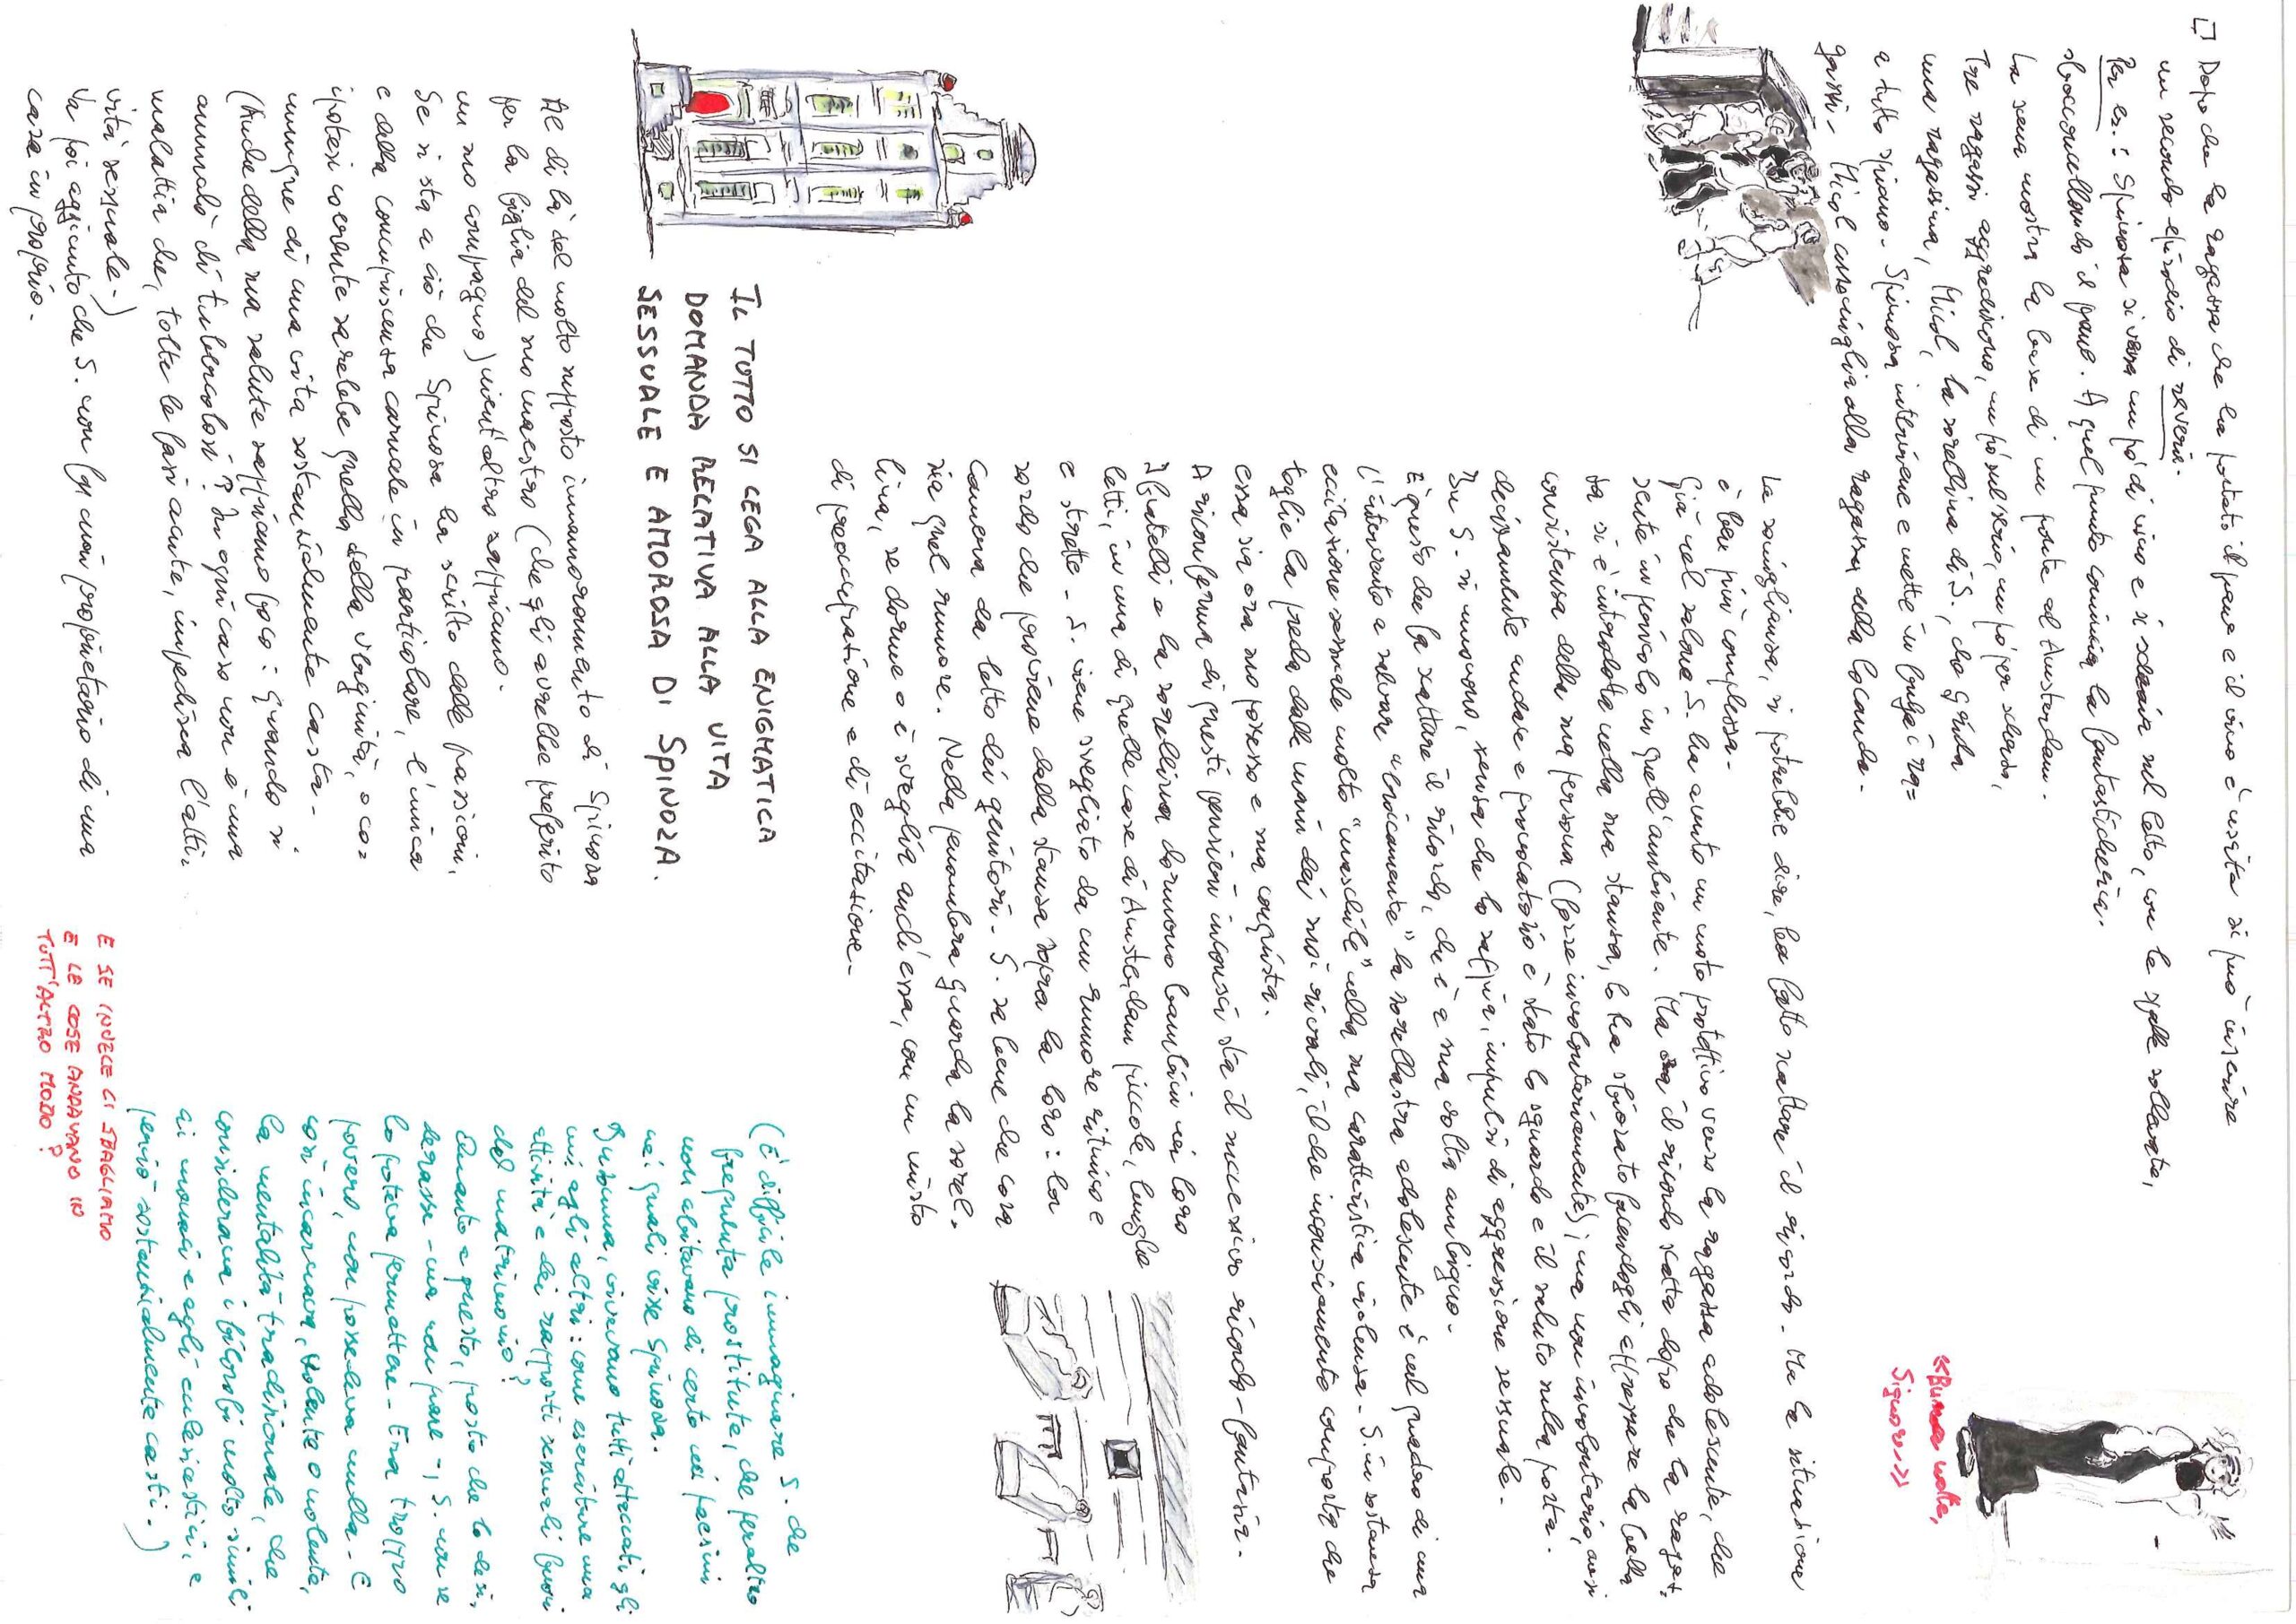 Dopo che la ragazza che ha portato il pane e il vino è uscita si può inserire
un secondo episodio di reverie.
Per es.: Spinoza si versa un pó di vino e si sdraia sul letto, con le spalle sollevate,
sbocconcellando il pane. A quel punto comincia la fantasticheria.
La scena mostra la base di un ponte ad Amsterdam.
Tre ragazzi aggrediscono, un pó sul serio, un pó per scherzo,
una ragazzina, Micol, la sorellina di S., che grida
a tutto spiano. Spinoza interviene e mette in fuga i ra=
gazzi. Micol assomiglia alla ragazza della locanda.
«Buona notte,
Signore»
La somiglianza, si potrebbe dire, ha fatto scattare il ricordo. Ma la situazione
è ben più complessa.
Già nel salone S. ha avuto un moto protettivo verso la ragazza adolescente, che
sente in pericolo in quell'ambiente. Ma il ricordo scatta dopo che la ragaz=
za si è introdotta nella sua stanza, lo ha sfiorato facendogli apprezzare la bella
consistenza della sua persona (forse involontariamente); ma non involontario, anzi
decisamente audace e provocatorio è stato lo sguardo e il saluto sulla porta.
In S. si muovono, senza che lo sappia, impulsi di aggressione sessuale.
È questo che fa scattare il ricordo, che è a sua volta ambiguo.
L'intervento a salvare "eroicamente" la sorellastra adolescente è nel quadro di una
eccitazione sessuale molto "maschile" nella sua caratteristica violenza. S. in sostanza
toglie la preda dalle mani dei suoi rivali, il che inconsciamente comporta che
essa sia ora suo possesso e sua conquista.
A riconferma di questi pensieri inconsci sta il successivo ricordo-fantasia.
I fratelli e la sorellina dormono bambini nei loro
letti, in una di quelle case di Amsterdam piccole, lunghe
e strette. S. viene svegliato da un rumore ritmico e
sordo che proviene dalla stanza sopra la loro: la
camera da letto dei genitori. S. sa bene che cosa
sia quel rumore. Nella penombra guarda la sorel-
lina, se dorme o è sveglia anch'essa, con un misto
di preoccupazione e di eccitazione.
IL TUTTO SI LEGA ALLA ENIGMATICA
DOMANDA RELATIVA ALLA VITA
SESSUALE E AMOROSA DI SPINOZA.
Al di là del molto supposto innamoramento di Spinoza
per la figlia del suo maestro (che gli avrebbe preferito
un suo compagno) nient'altro sappiamo.
Se si sta a ciò che Spinoza ha scritto delle passioni,
e della concupiscenza carnale in particolare, l'unica
ipotesi coerente sarebbe quella della verginità, o co=
munque di una vita sostanzialmente casta.
(Anche della sua salute sappiamo poco: quando si
ammalò di tubercolosi? In ogni caso non è una
malattia che, tolte le fasi acute, impedisca l'atti-
vità sessuale.)
Va poi aggiunto che S. non fu mai proprietario di una
casa in proprio.
(È difficile immaginare S. che
frequenta prostitute, che peraltro
non abitavano di certo nei paesini
nei quali visse Spinoza.
Insomma, vivevano tutti attaccati gli
uni agli altri: come esercitare una
attività e dei rapporti sessuali fuori
del matrimonio?
Quanto a questo, posto che lo desi,
derasse - ma non pare -, S. non se
lo poteva permettere. Era troppo
povero, non possedeva nulla. E
così incarnava, volente o nolente,
la mentalità tradizionale, che
considerava i filosofi molto simili
ai monaci e agli ecclesiastici, e
perciò sostanzialmente casti.)
E SE INVECE CI SBAGLIAMO
E LE COSE ANDAVANO IN
TUTT'ALTRO MODO?